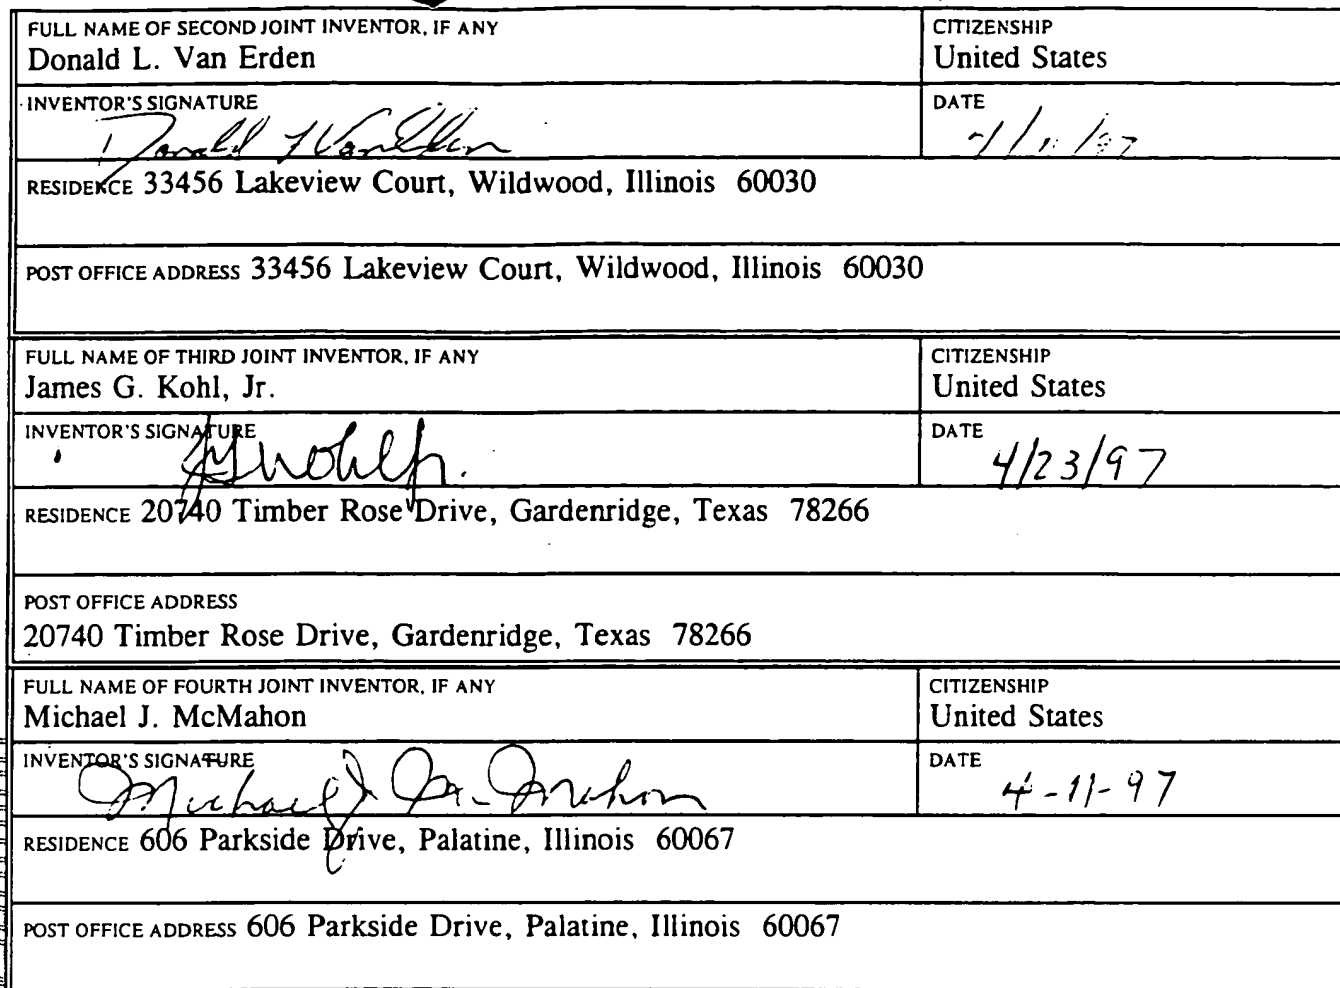 FULL NAME OF SECOND JOINT INVENTOR, IF ANY CITIZENSHIP
Donald L. Van Erden United States
INVENTOR'S SIGNATURE DATE
Donald L Van Erden
RESIDENCE 33456 Lakeview Court, Wildwood, Illinois 60030
POST OFFICE ADDRESS 33456 Lakeview Court, Wildwood, Illinois 60030
FULL NAME OF THIRD JOINT INVENTOR, IF ANY CITIZENSHIP
James G. Kohl, Jr. United States
INVENTOR'S SIGNATURE DATE
JGKohl Jr. 4/23/97
RESIDENCE 20740 Timber Rose Drive, Gardenridge, Texas 78266
POST OFFICE ADDRESS
20740 Timber Rose Drive, Gardenridge, Texas 78266
FULL NAME OF FOURTH JOINT INVENTOR, IF ANY CITIZENSHIP
Michael J. McMahon United States
INVENTOR'S SIGNATURE DATE
Michael J. McMahon 4-11-97
RESIDENCE 606 Parkside Drive, Palatine, Illinois 60067
POST OFFICE ADDRESS 606 Parkside Drive, Palatine, Illinois 60067